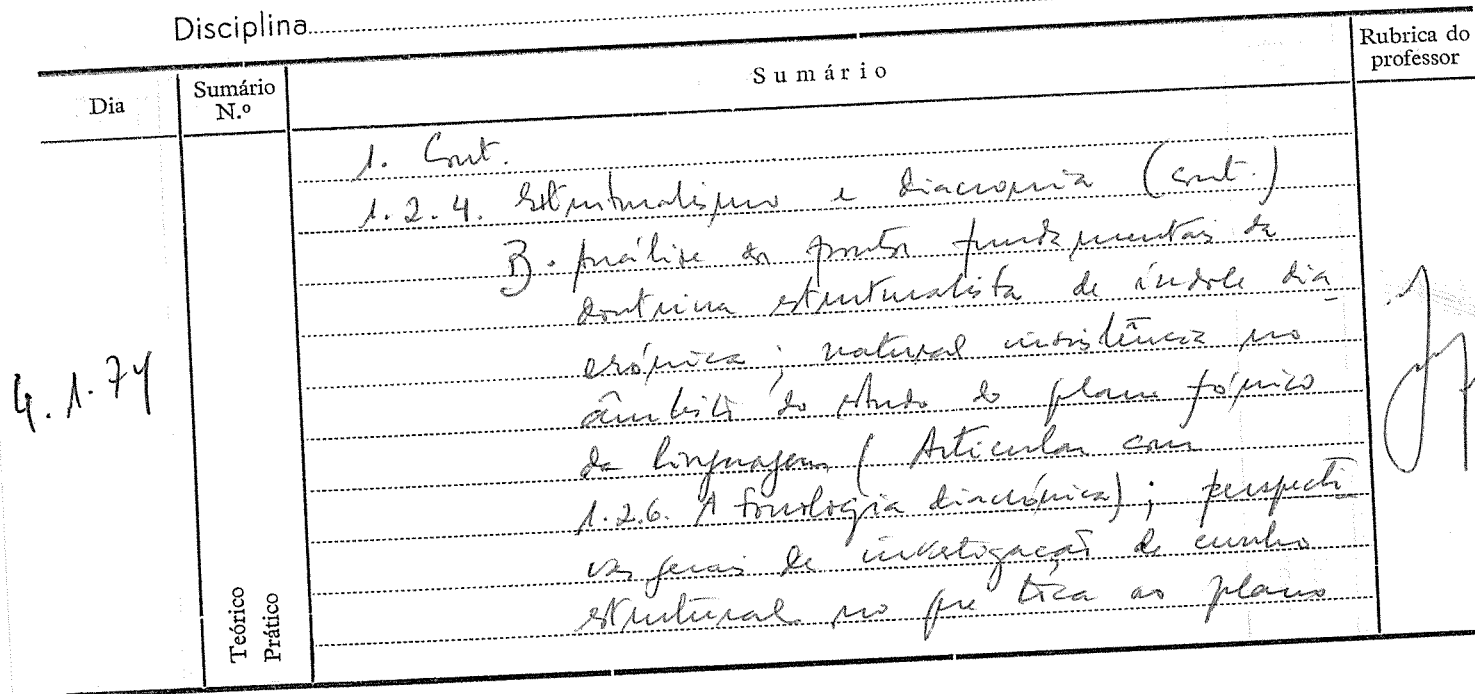 Disciplina
Dia
Sumário N.º
Sumário
Rubrica do professor
4.1.74
Teórico
Prático
1. Cont.
1.2.4. Estruturalismo e diacronia (cont.)
B. Análise dos pontos fundamentais da
doutrina estruturalista de índole dia_
crónica; natural insistência no
âmbito do estudo do plano fónico
da linguagem (Articular com
1.2.6. A fonologia diacrónica); perspecti_
vas gerais de investigação de cunho
estrutural no que toca ao plano